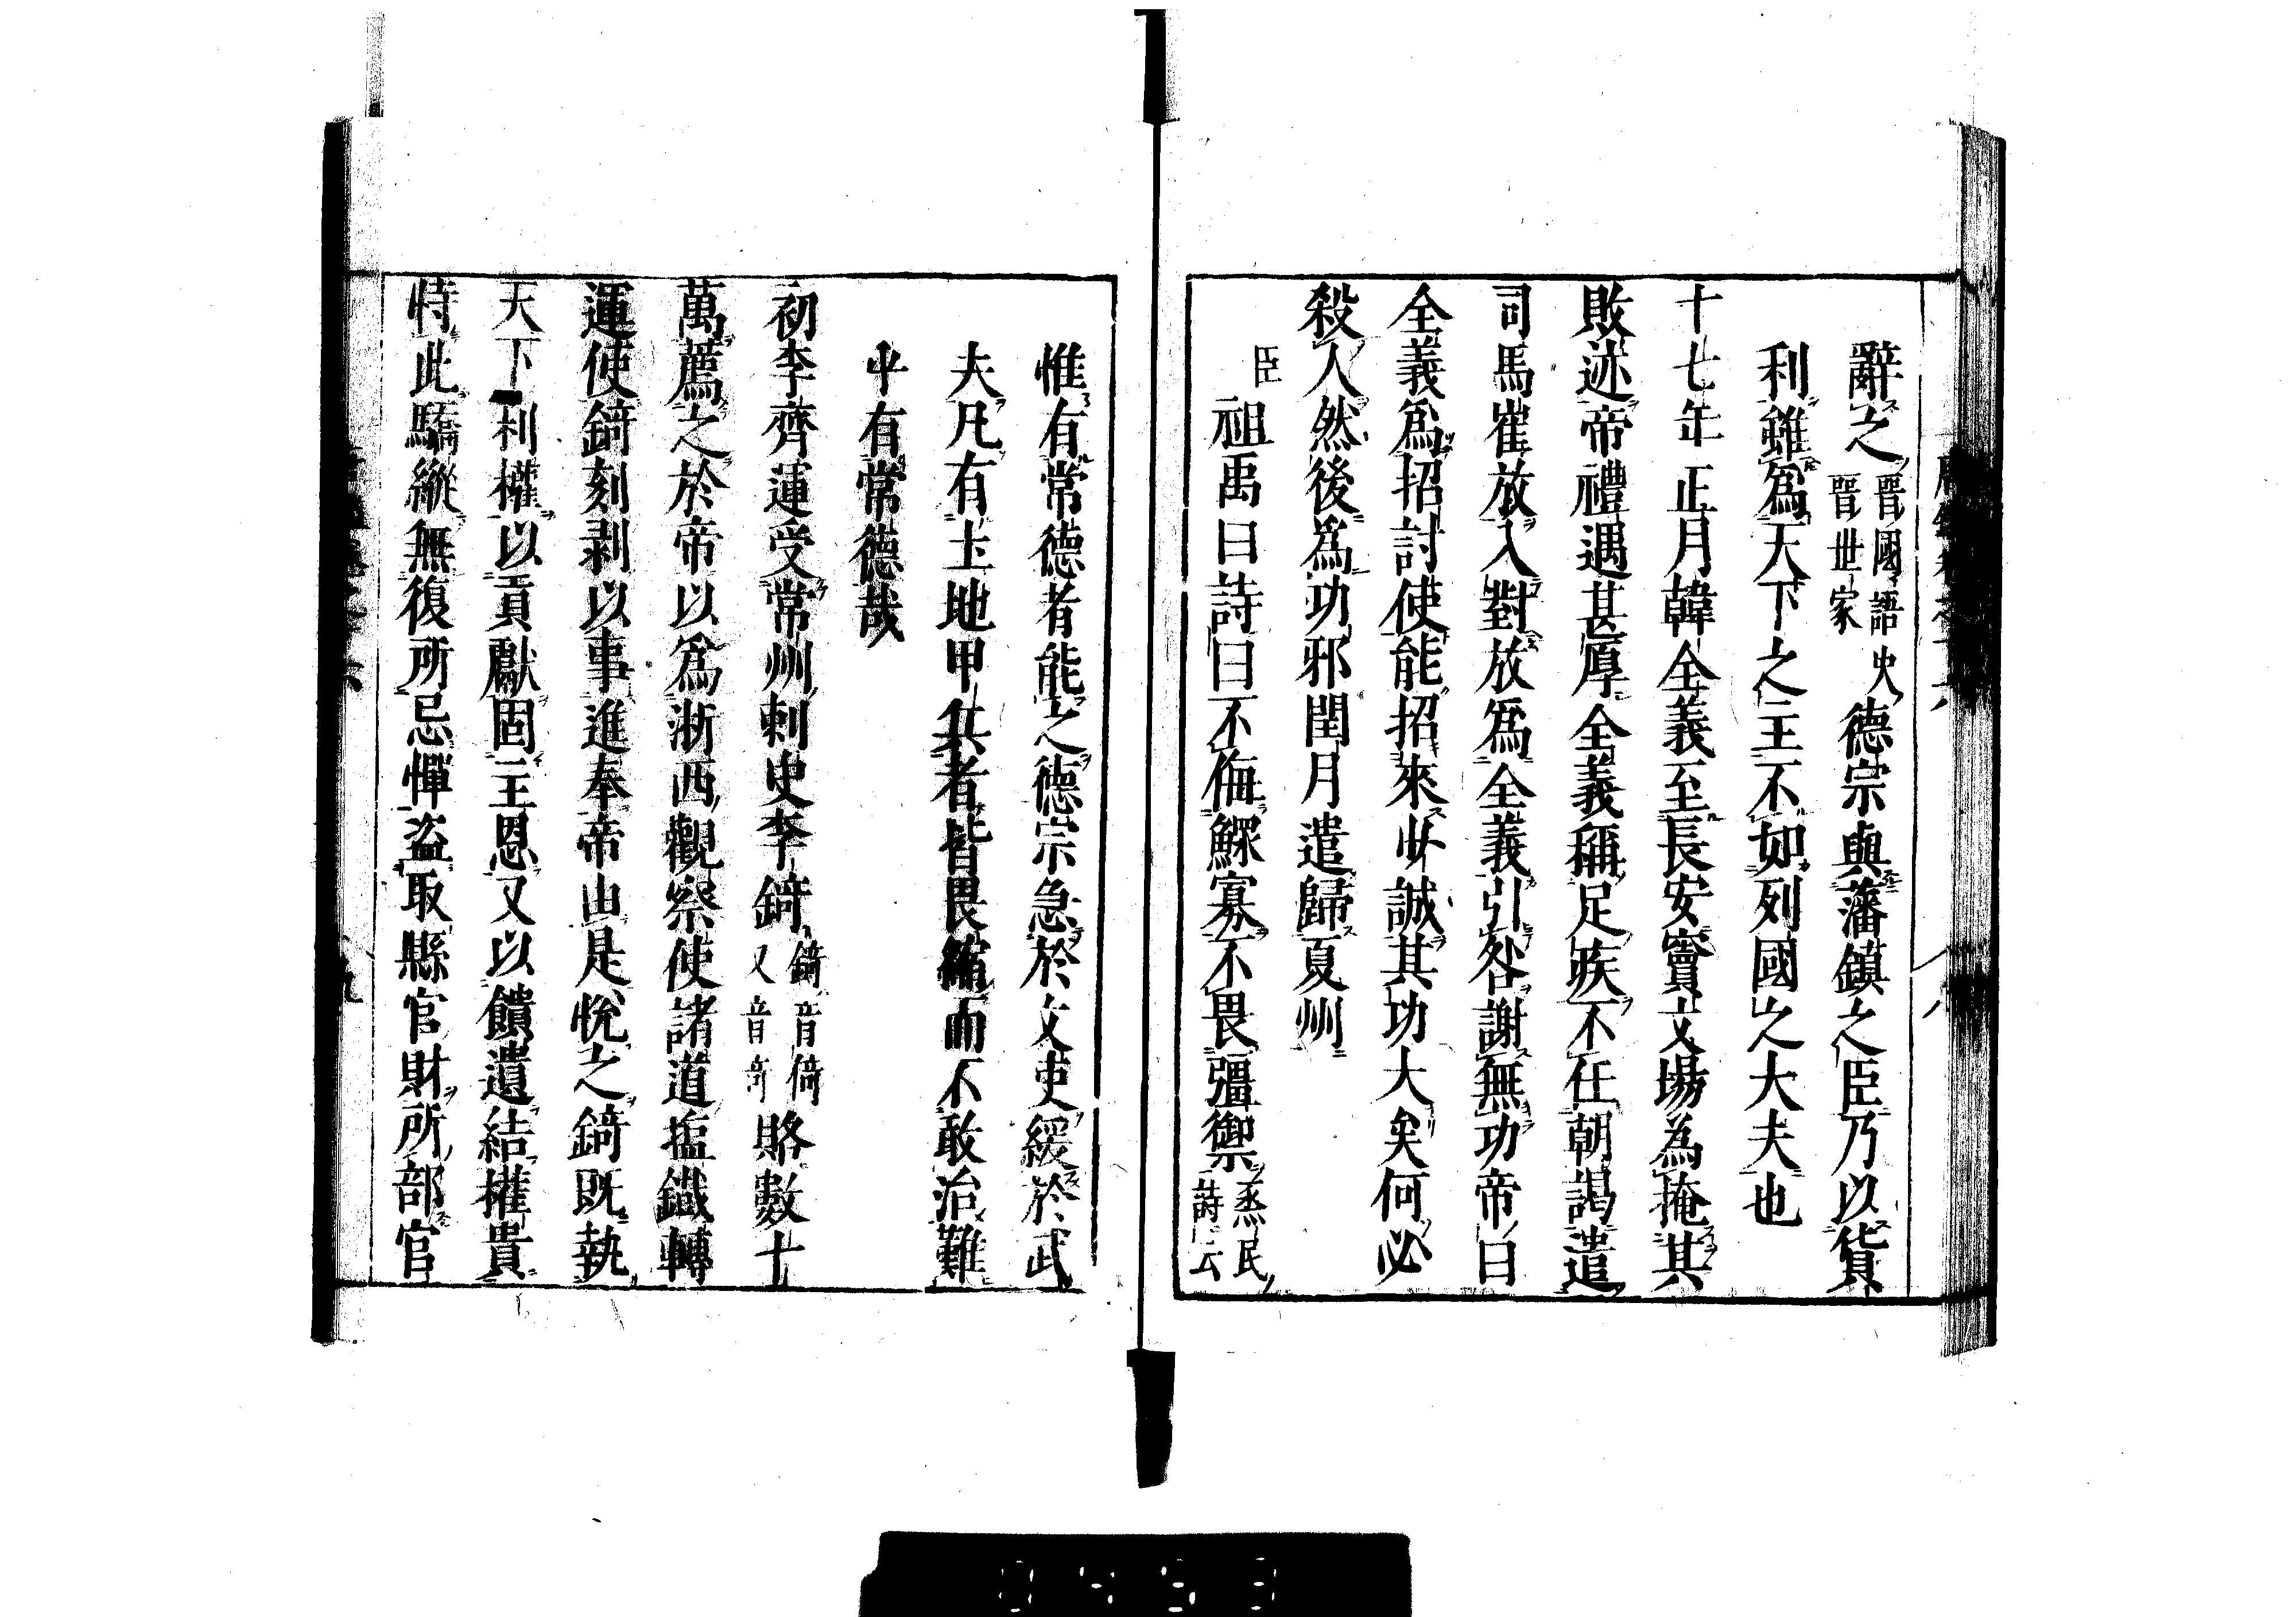 辭之晉國語史晉世家德宗與藩鎮之臣乃以貨
利雖爲天下之主不如列國之大夫也
十七年正月韓全義至長安竇文場為掩其
敗迹帝禮遇甚厚全義稱足疾不任朝謁遣
司馬崔放入對放爲全義引咎謝無功帝曰
全義爲招討使能招來少誠其功大矣何必
殺人然後爲功邪閏月遣歸夏州
臣祖禹曰詩曰不侮鰥寡不畏彊禦烝民詩云
惟有常德者能之德宗急於文吏緩於武
夫凡有土地甲兵者皆畏縮而不敢治難
乎有常德哉
初李齊運受常州刺史李錡錡音倚又音奇賂數十
萬薦之於帝以爲浙西觀察使諸道塩鐵轉
運使錡刻剥以事進奉帝由是悅之錡既執
天下利權以貢獻固主恩又以饋遺結權貴
恃此驕縱無復所忌憚盗取縣官財所部官